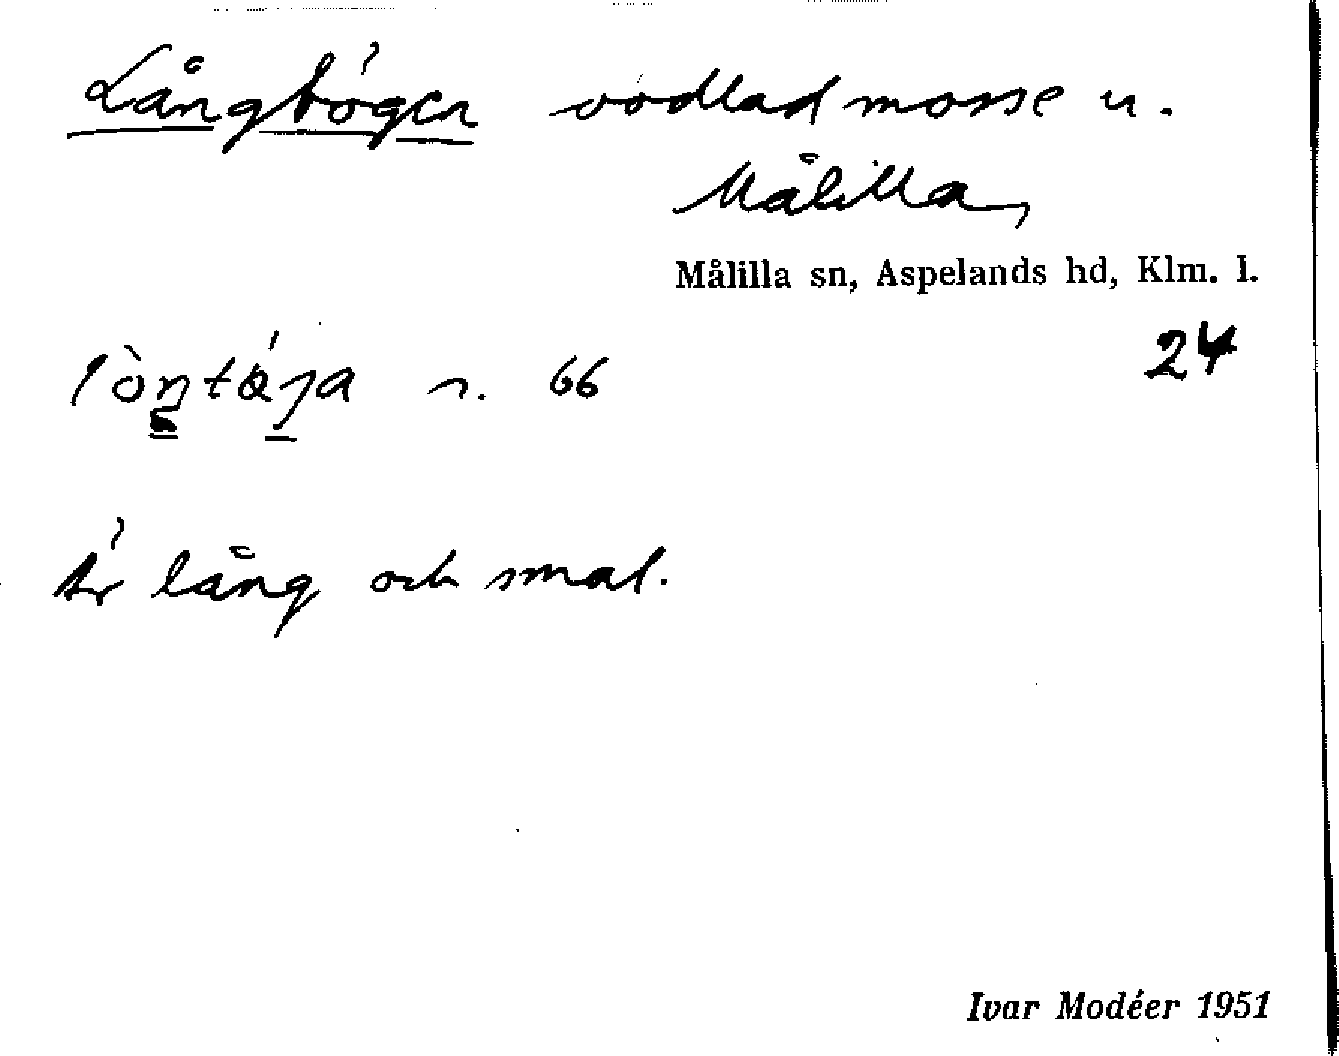 Långtögen oodlad mosse u.
Målilla,
Målilla sn, Aspelands hd, Klm. l.
24
n. 66
Är lång och smal.
Ivar Modéer 1951